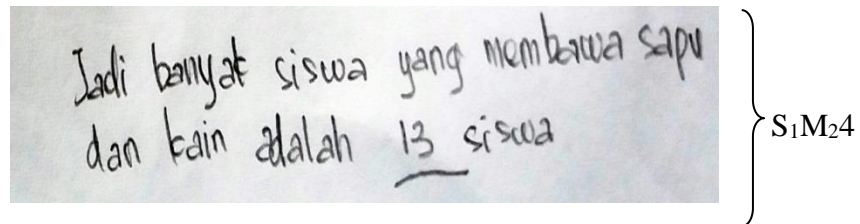 Jadi banyak siswa yang membawa sapu
dan kain adalah 13 siswa
S₁M₂4